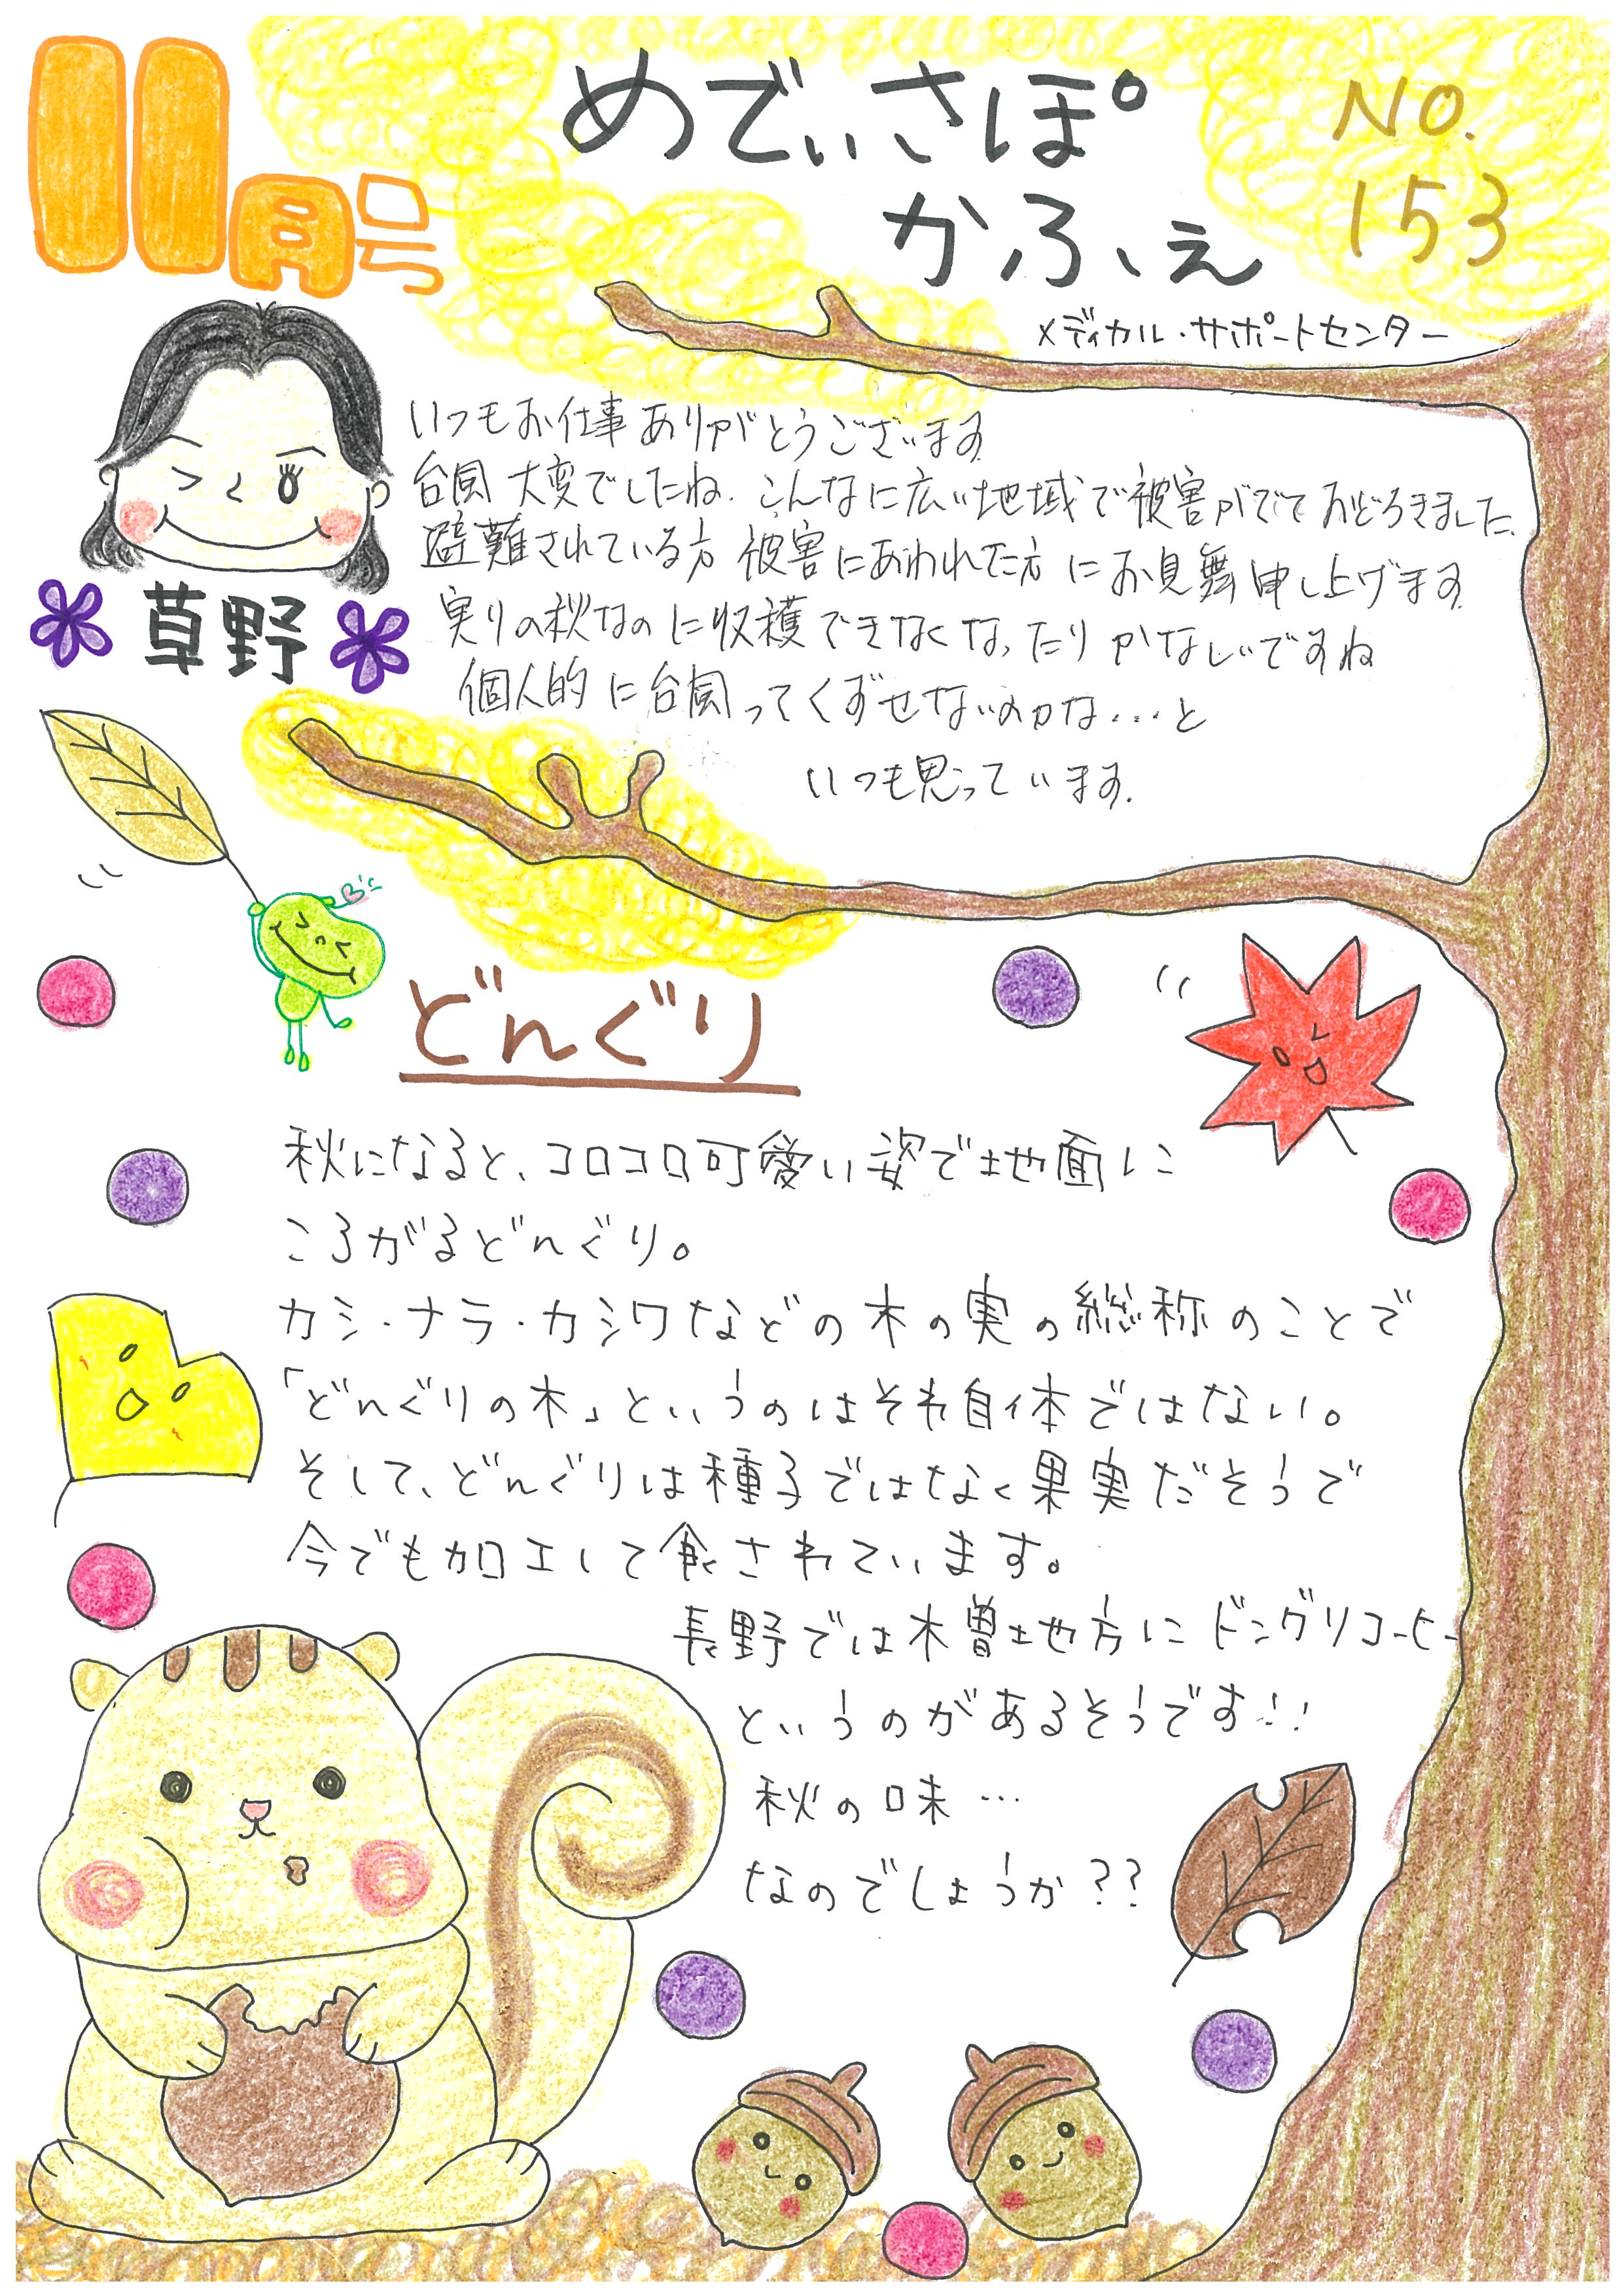 11月号
めでぃさぽ
かふぇ
NO.
153
メディカル・サポートセンター
いつもお仕事ありがとうございます
台風大変でしたね.こんなに広い地域で被害がでておどろきました.
避難されている方 被害にあわれた方にお見舞申し上げます
実りの秋なのに収穫できなくなったりかなしいですね
個人的に台風ってくずせないのかな...と
いつも思っています.
草野
どんぐり
秋になると、コロコロ可愛い姿で地面に
ころがるどんぐり。
カシ・ナラ・カシワなどの木の実の総称のことで
「どんぐりの木」というのはそれ自体ではない。
そして、どんぐりは種子ではなく果実だそうで
今でも加工して食されています。
長野では木曽地方にドングリコーヒー
というのがあるそうです!!
秋の味…
なのでしょうか??